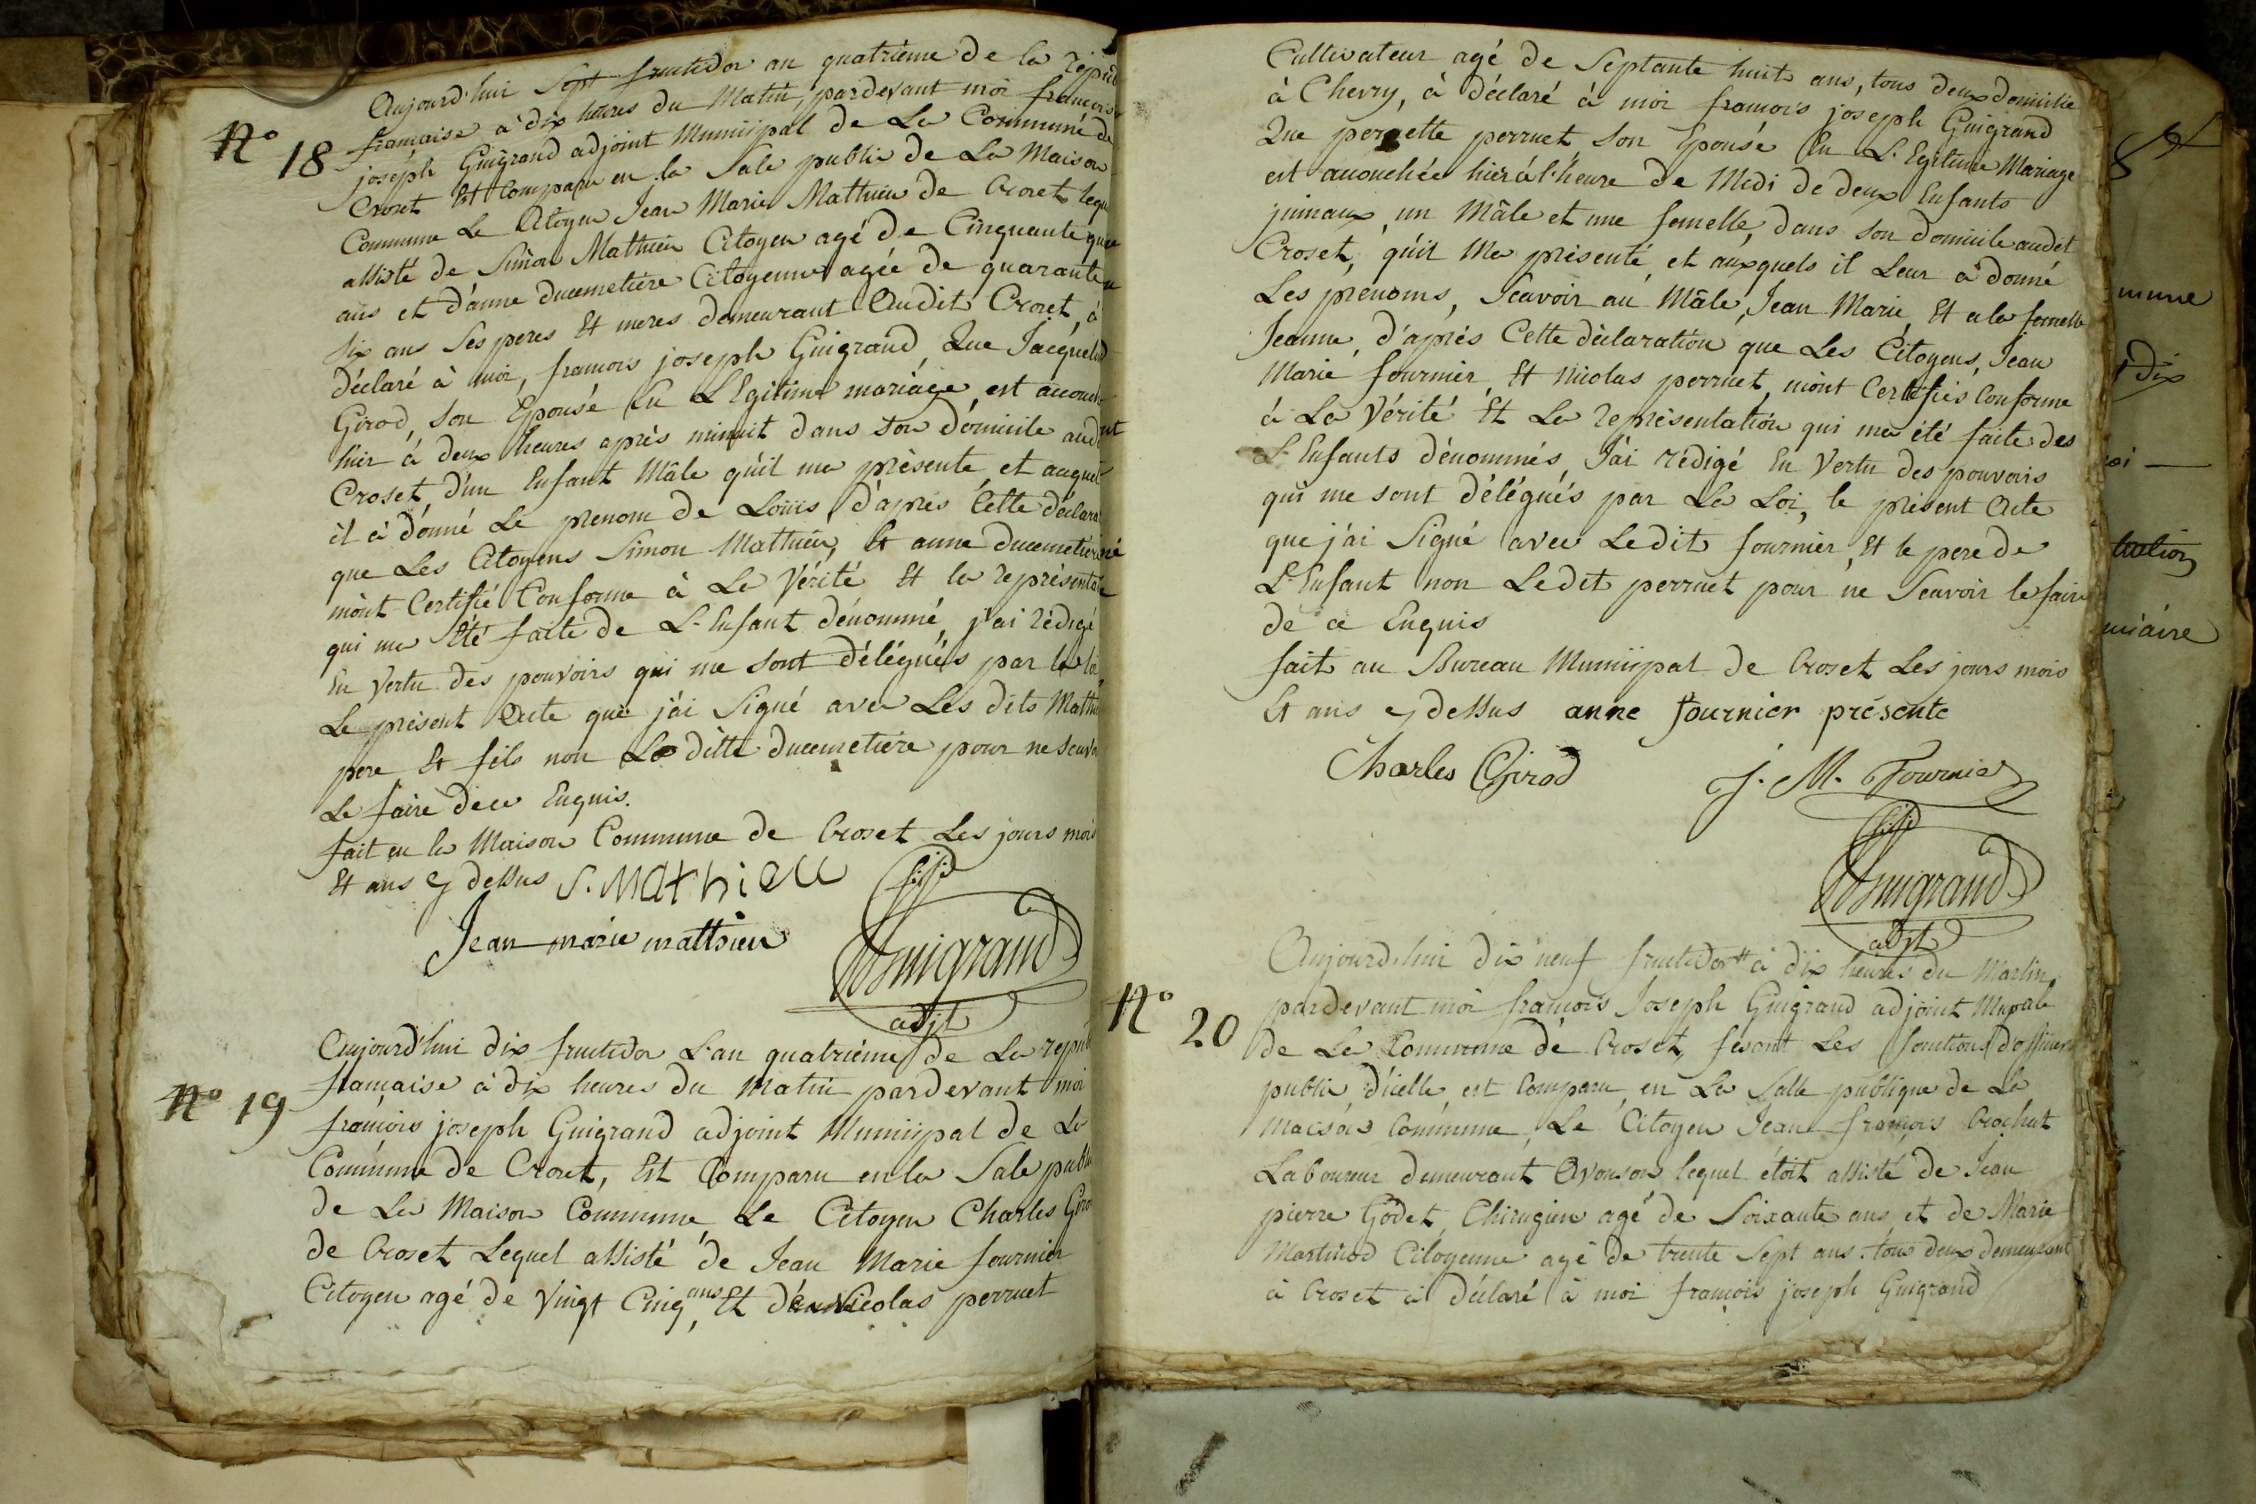 Aujourd'hui Sept fructidor an quatrième de la répub
N.o 18 française à dix heures du Matin, pardevant moi françois
joseph Guigrand adjoint Municipal de La Commune de
Crozet Est Comparu en la Sale public de La Maison
Commune Le Citoyen Jean Marie Mathieu de Crozet leque
assisté de Simon Mathieu Citoyen agé de Cinquante quatre
ans et d'anne ducemetiere Citoyenne agée de quarante
six ans Ses peres Et meres demeurant Audit Crozet, à
déclaré à moi, francois joseph Guigrand, Que Jacqueline
Girod, son Epousé En L'Egitime mariage, est accouch
hier à deux heures après minuit dans son domicile audit
Croset, d'un Enfant Mâle qu'il me présente et auquel
il à donné Le prenom de Loüis, d'après Cette déclara
que Les Citoyens Simon Mathieu, Et anne ducemetiere
mònt Certifié Conforme à La Vérité Et la représenta
qui ma Eté faite de L'Enfant dénommé, j'ai rédigé
En Vertu des pouvoirs qui me sont délégués par la loi
Le présent Acte que j'ai Signé avec Les dits Mathi
pere Et fils non La ditte ducemetiere pour ne scavo
Le faire de ce Enquis.
fait en la Maison Commune de Croset Les jours mois
Et ans cy dessus S. MAthieu
Jean-marie matthieu
Guigrand
adjt
Aujourd'hui dix fructidor L'an quatrième de La répub
N.o 19 française à dix heures du Matin pardevant moi
françois joseph Guigrand adjoint Municipal de La
Commune de Crozet, Est Comparu en la Sale publi
de La Maison Commune, Le Citoyen Charles Giro
de Croset Lequel assisté de Jean Marie fournier
Citoyen agé de Vingt Cinq ans, Et de Nicolas perruet
Cultivateur agé de Septante huit ans, tous deux domicilie
à Chevry, à déclaré à moi francois joseph Guigrand
Que pernette perruet Son Epousé En L'Egitime Mariage
est accouchée hier à l'heure de Midi de deux Enfants
jumaux, un Mâle et une femelle, dans son domicile audit
Croset, qu'il Ma présenté, et auxquels il Leur à donné
Les prenoms, Scavoir au Mâle, Jean Marie, Et a la femelle
Jeanne, d'après Cette déclaration que Les Citoyens, Jean
Marie fournier, Et Nicolas perruet, mònt Certifiés Conforme
à La Vérité Et La représentation qui ma été faite des
L'Enfants dénommés, J'ai rédigé En Vertu des pouvoirs
qui me sont délégués par La Loi, le présent Acte
que j'ai Signé avec Ledit fournier, Et le pere de
L'Enfant non Ledit perruet pour ne Scavoir le faire
de ce Enquis
fait au Bureau Municipal de Croset Les jours mois
Et ans cy dessus anne fournier présente
Charles Girod J. M. Fournier
Guigrand
adjt
Aujourd'hui dix neuf fructidor à dix heures du Matin
N.o 20 pardevant moi francois Joseph Guigrand adjoint Mupal
de La Commune de Croset, fesant Les fonctions dofficier
public d'icelle, est Comparu, en La Salle publique de La
Maison Commune, Le Citoyen Jean françois Crochat
Laboureur demeurant Avouson lequel étoit assisté de Jean
pierre Godet, Chirugien agé de Soixante ans et de Marie
Martinod Citoyenne agé de trente Sept ans. tous deux demeurant
à Croset à déclaré à moi francois joseph Guigrand
mmune
dix
oi
iaire